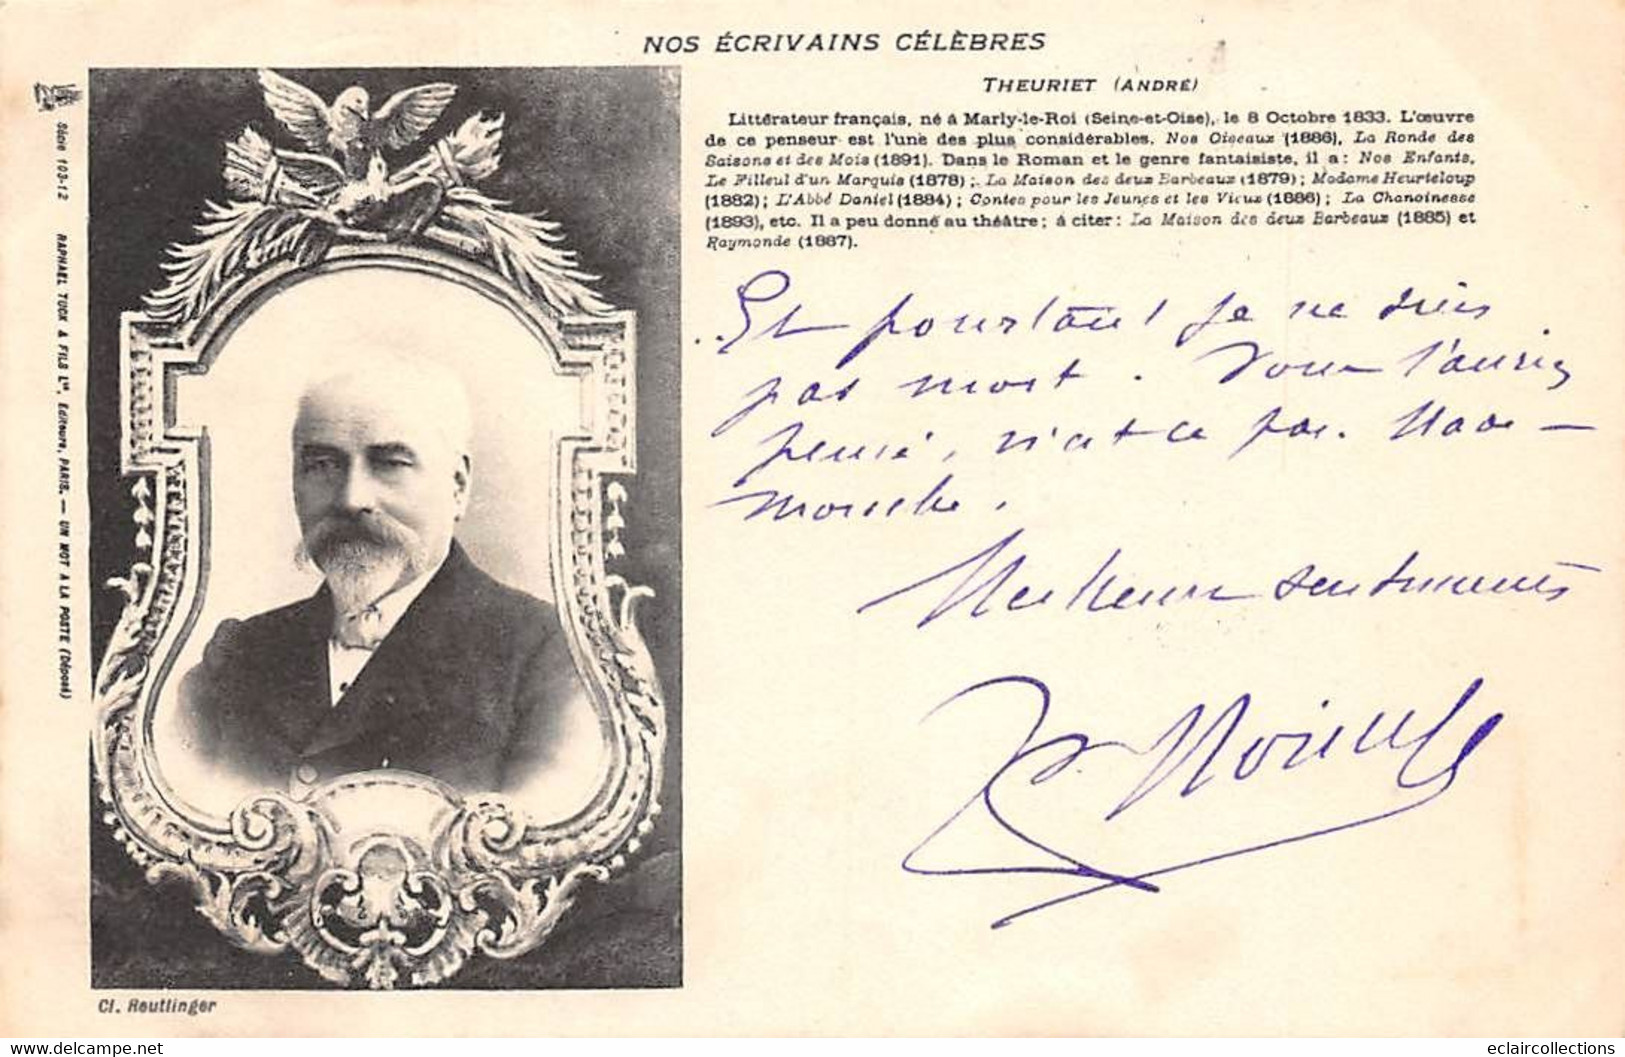 NOS ÉCRIVAINS CÉLÈBRES
THEURIET (ANDRÉ)
Littérateur français, né à Marly-le-Roi (Seine-et-Oise), le 8 Octobre 1833. L'œuvre
de ce penseur est l'une des plus considérables. Nos Oiseaux (1886), La Ronde des
Saisons et des Mois (1891). Dans le Roman et le genre fantaisiste, il a : Nos Enfants,
Le Filleul d'un Marquis (1878) ; La Maison des deux Barbeaux (1879) ; Madame Heurteloup
(1882) ; L'Abbé Daniel (1884) ; Contes pour les Jeunes et les Vieux (1886) ; La Chanoinesse
(1893), etc. Il a peu donné au théâtre ; à citer : La Maison des deux Barbeaux (1885) et
Raymonde (1887).
Et pourtant je ne suis
pas mort. Vous l'auriez
pensé, n'est-ce pas.
Meilleurs sentiments
Série 103-12 RAPHAEL TUCK & FILS Lᵗᵈ, Editeurs, PARIS. — UN MOT A LA POSTE (Déposé)
Cl. Reutlinger
www.delcampe.net
eclaircollections